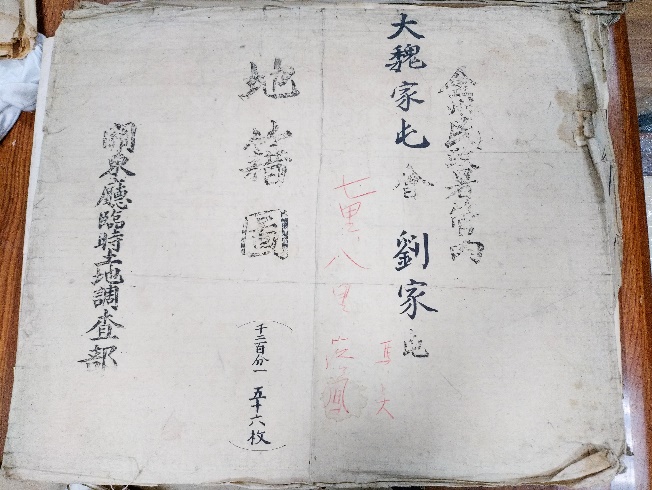 金州民政署管內
大魏家屯會 劉家屯
七里八里
地籍圖
(千二百分一 五十六枚)
關東廳臨時土地調查部